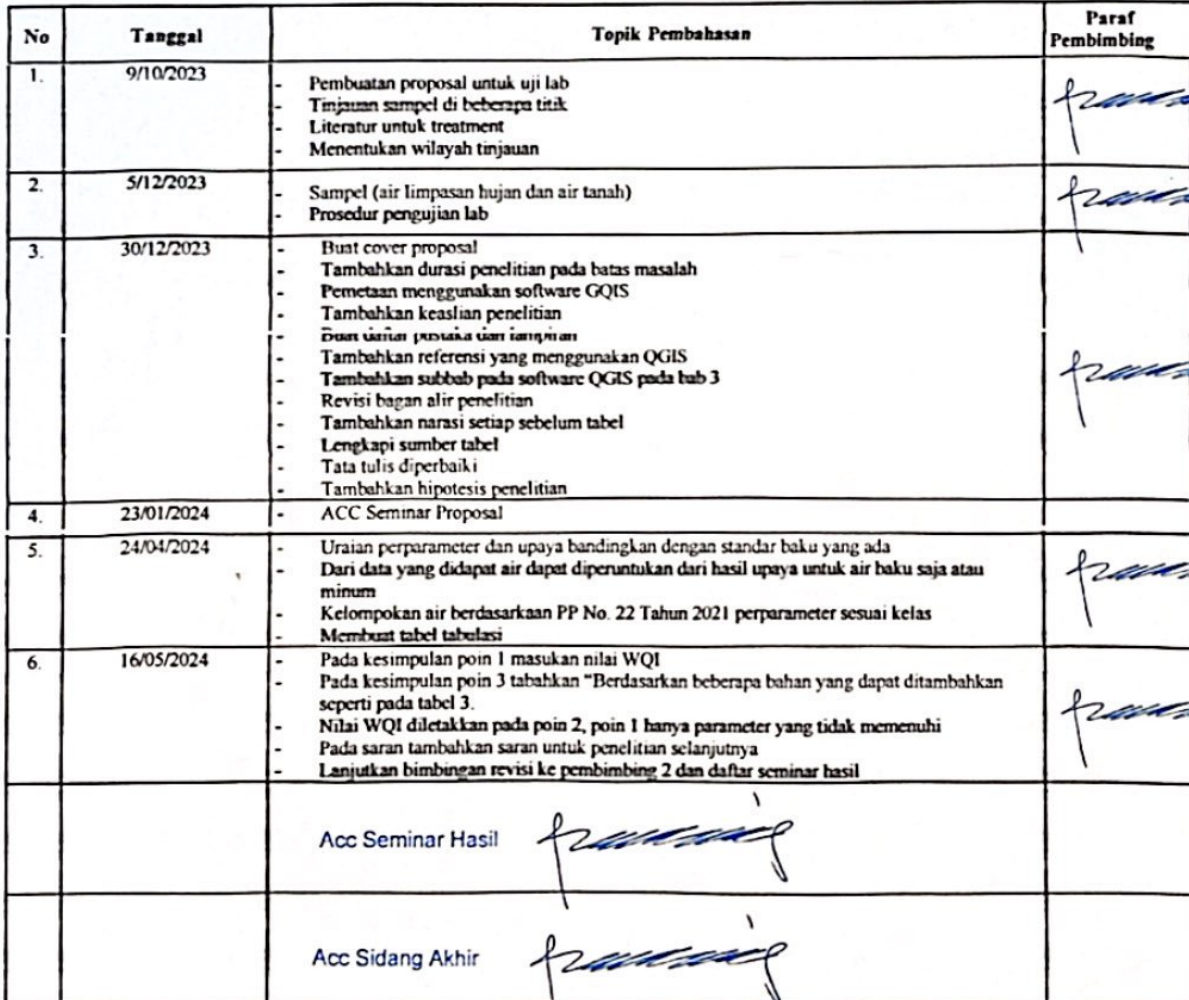 No Tanggal Topik Pembahasan Paraf Pembimbing
1. 9/10/2023
- Pembuatan proposal untuk uji lab
- Tinjauan sampel di beberapa titik
- Literatur untuk treatment
- Menentukan wilayah tinjauan
2. 5/12/2023
- Sampel (air limpasan hujan dan air tanah)
- Prosedur pengujian lab
3. 30/12/2023
- Buat cover proposal
- Tambahkan durasi penelitian pada batas masalah
- Pemetaan menggunakan software GQIS
- Tambahkan keaslian penelitian
- Buat daftar pustaka dan lampiran
- Tambahkan referensi yang menggunakan QGIS
- Tambahkan subbab pada software QGIS pada bab 3
- Revisi bagan alir penelitian
- Tambahkan narasi setiap sebelum tabel
- Lengkapi sumber tabel
- Tata tulis diperbaiki
- Tambahkan hipotesis penelitian
4. 23/01/2024
- ACC Seminar Proposal
5. 24/04/2024
- Uraian perparameter dan upaya bandingkan dengan standar baku yang ada
- Dari data yang didapat air dapat diperuntukan dari hasil upaya untuk air baku saja atau
minum
- Kelompokan air berdasarkaan PP No. 22 Tahun 2021 perparameter sesuai kelas
- Membuat tabel tabulasi
6. 16/05/2024
- Pada kesimpulan poin 1 masukan nilai WQI
- Pada kesimpulan poin 3 tabahkan "Berdasarkan beberapa bahan yang dapat ditambahkan
seperti pada tabel 3.
- Nilai WQI diletakkan pada poin 2, poin 1 hanya parameter yang tidak memenuhi
- Pada saran tambahkan saran untuk penelitian selanjutnya
- Lanjutkan bimbingan revisi ke pembimbing 2 dan daftar seminar hasil
Acc Seminar Hasil
Acc Sidang Akhir